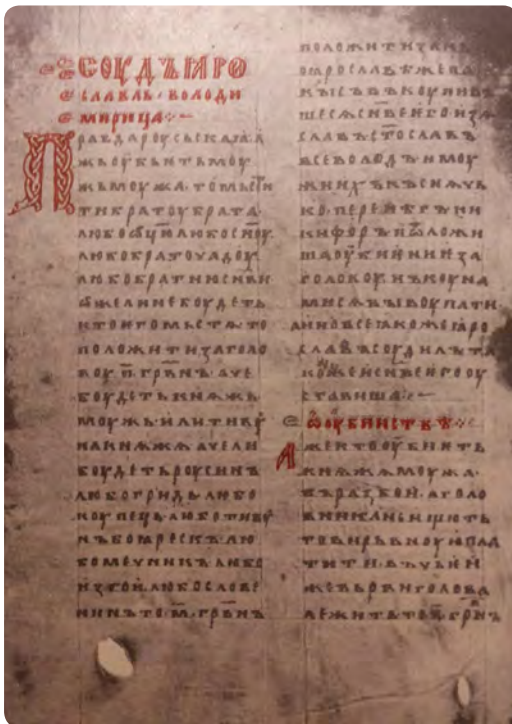 СОУДЪ ꙖРО
СЛАВЛЬ · ВОЛОДИ
МИРИЦА ⁘
Правда роусьскаꙗ · а
жь оубьѥть моу
жь моужа · то мьстн
ти братоу брата ·
любо ѡц҃ю любо сноу
любо братоучадоу
любо братню сн҃ви
ѡже ли не боудеть
кто ѥго мьстѧ то
положити за голо
воу · п҃ · грвн҃ъ · аче
боудеть кнѧжь
моужь · или тивоу
на кнѧжа · аче ли
боудеть роусинъ
любо гридь · любо
коупець · любо тивоу
нъ боꙗрескъ · лю
бо мечникъ · любо
изгои · любо слове
нинъ то · м҃ · грвн҃ъ
положити за нь
по ꙗрославѣ же па
кы съвъкоупивъ
шесѧ сн҃ве ѥго · изѧ
славъ ст҃ославъ
всеволодъ и моу
жи ихъ къснѧчь
ко · перенѣгъ · ни
кифоръ · и ѿложи
ша оубиѥниѥ за
головоу · нъ коуна
ми сѧ выкоупати ·
а ино все ꙗкоже ꙗро
славъ соудилъ та
коже и сн҃ве ѥго оу
ставиша ⁘
Ѡ ОУБИИСТВѢ ⁘
Аже кто оубиѥть
кнѧжа моужа ·
въ разбои · а голо
вника не ищють
то вирьвноую пла
тити · въ чьѥи
же вьрви голова
лежить то · п҃ · грвн҃ъ